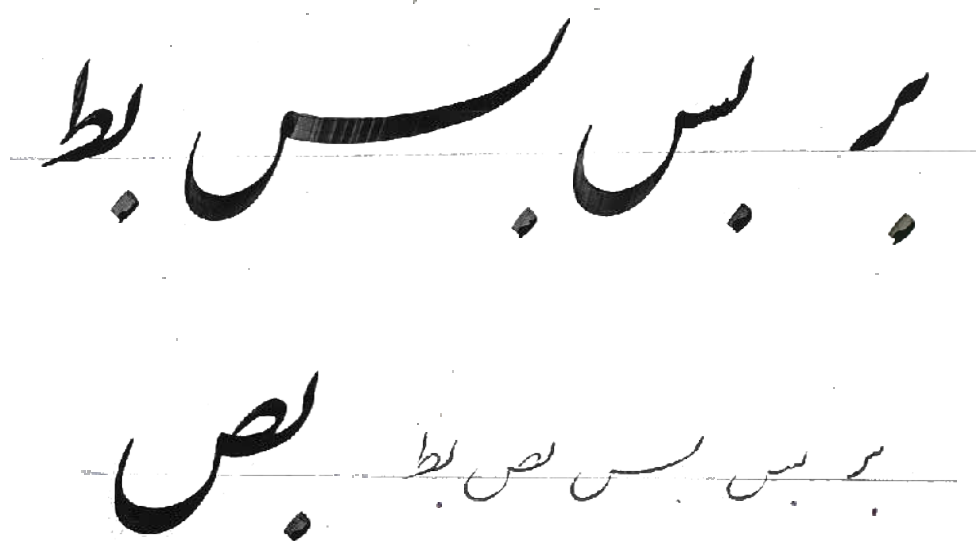 بر بس بس بط
بص بر بس بس بص بط